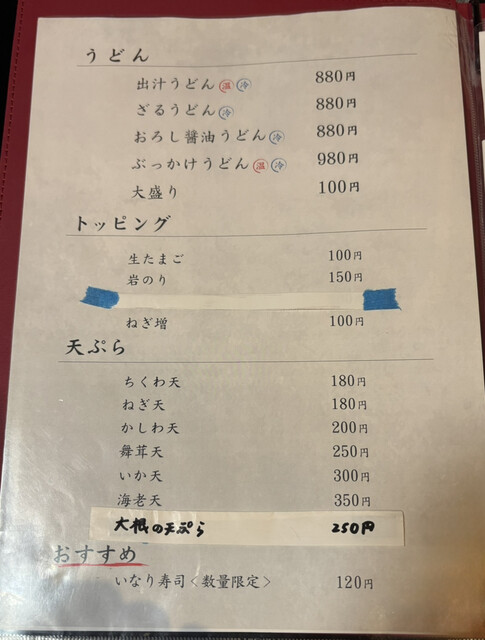 うどん
出汁うどん 温 冷 880円
ざるうどん 冷 880円
おろし醤油うどん 冷 880円
ぶっかけうどん 温 冷 980円
大盛り 100円
トッピング
生たまご 100円
岩のり 150円
ねぎ増 100円
天ぷら
ちくわ天 180円
ねぎ天 180円
かしわ天 200円
舞茸天 250円
いか天 300円
海老天 350円
大根の天ぷら 250円
おすすめ
いなり寿司<数量限定> 120円